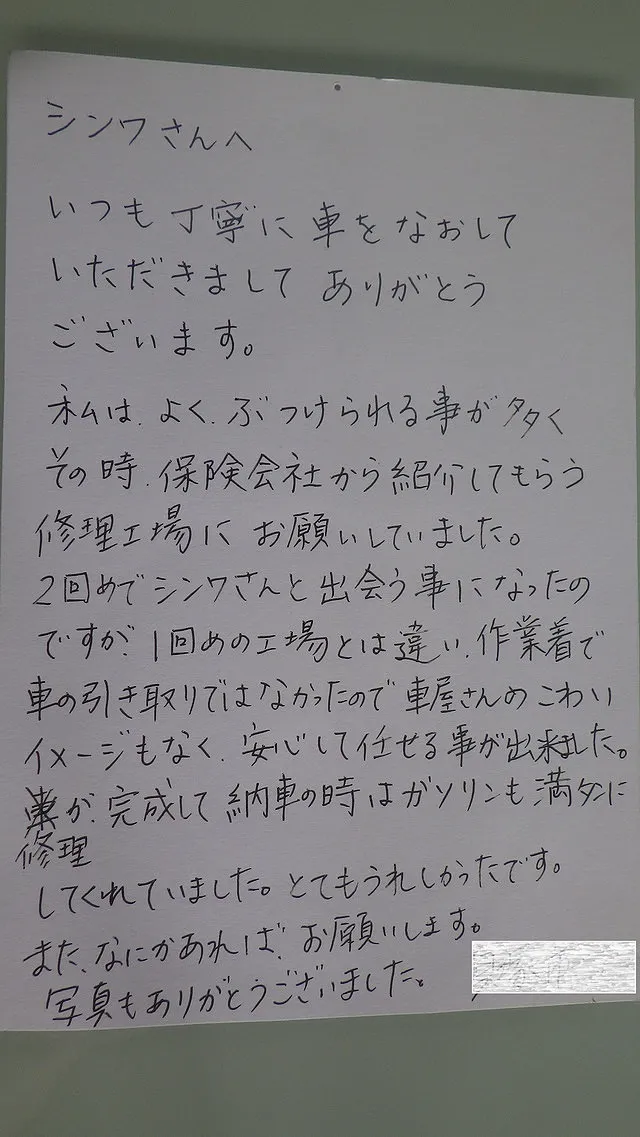 シンワさんへ
いつも丁寧に車をなおして
いただきまして ありがとう
ございます。
私は、よく、ぶつけられる事が多く
その時、保険会社から紹介してもらう
修理工場に お願いしていました。
2回めでシンワさんと出会う事になったの
ですが、1回めの工場とは違い、作業着で
車の引き取りではなかったので車屋さんのこわい
イメージもなく、安心して任せる事が出来ました。
が、完成して納車の時はガソリンも満タンに
修理
してくれていました。とてもうれしかったです。
また、なにかあれば、お願いします。
写真もありがとうございました。